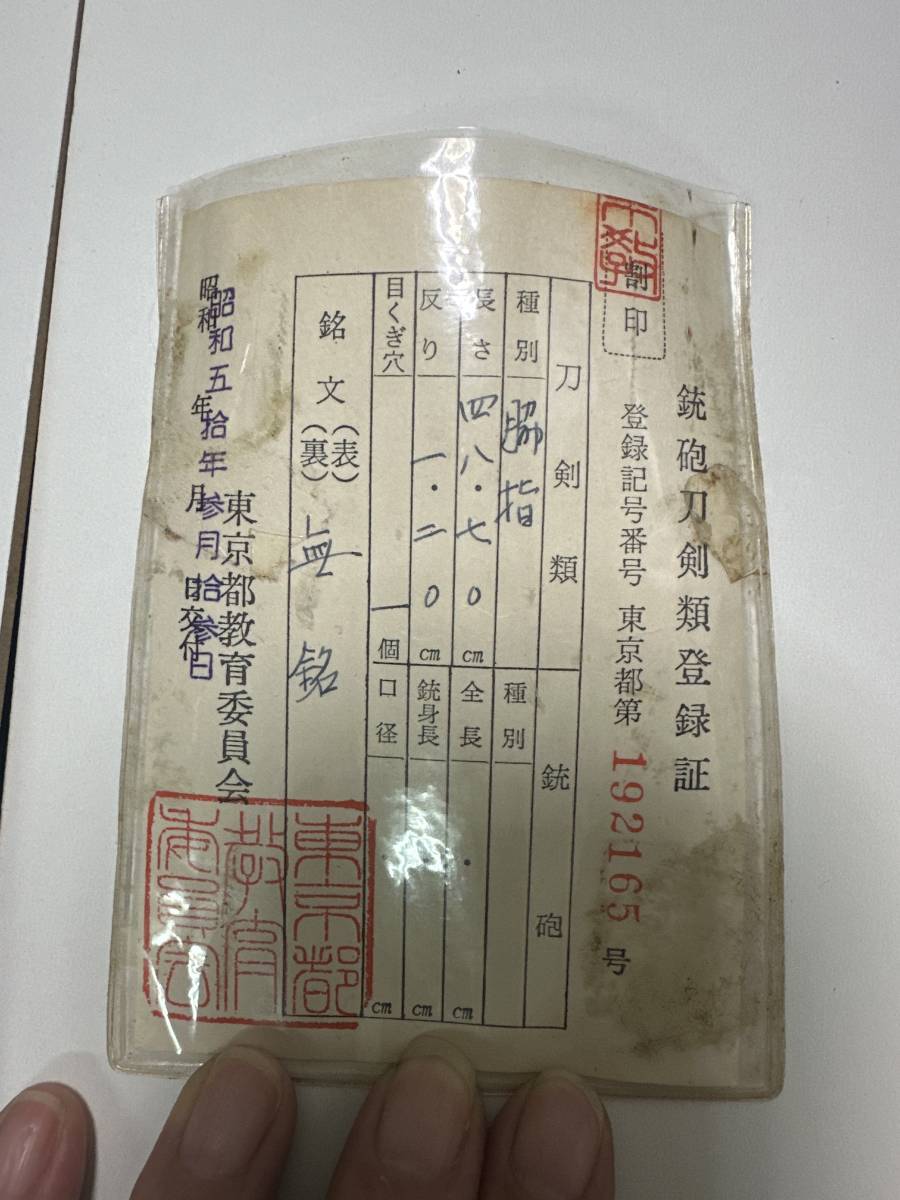 銃砲刀剣類登録証
割印
登録記号番号 東京都第 192165 号
刀剣類
種別 脇指
長さ 四八・七〇 cm
反り 一・二〇 cm
目くぎ穴 一 個
銃砲
種別
全長 ・ cm
銃身長 ・ cm
口径 ・ cm
銘文 (表) (裏) 無銘
東京都教育委員会
昭和 年 月 日交付
昭和五拾年参月拾参日
東京都
教育
委員会